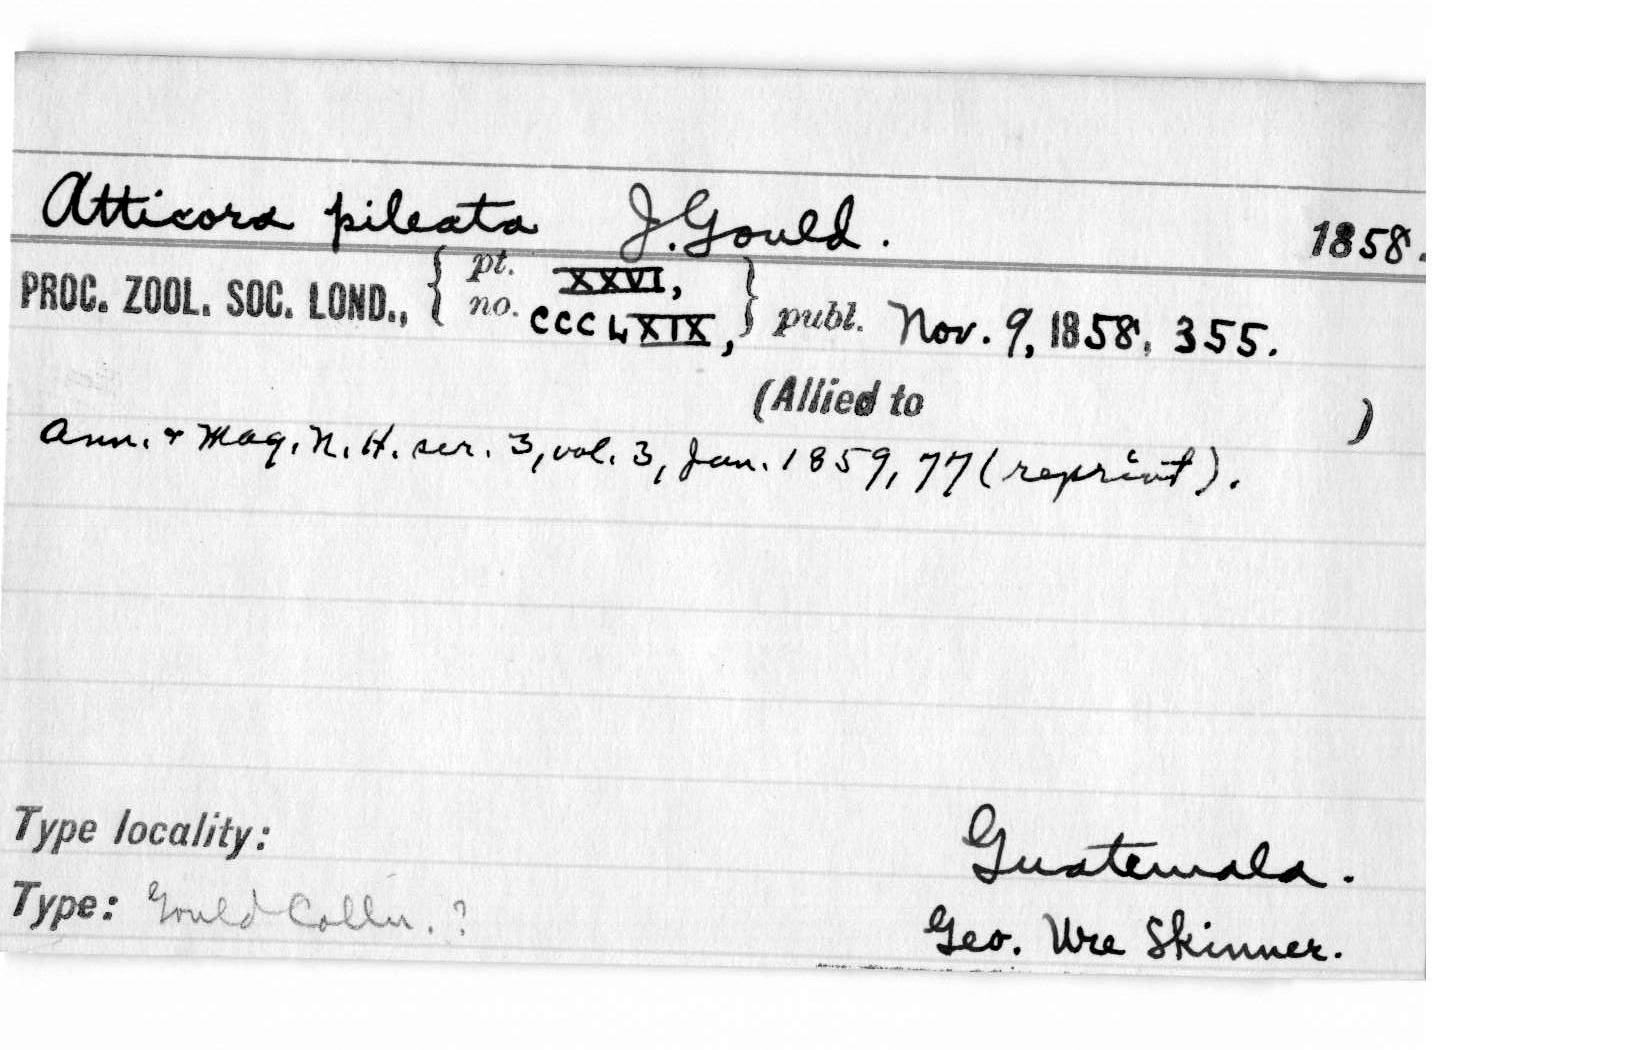 Atticora pileata J. Gould. 1858.
PROC. ZOOL. SOC. LOND., { pt. XXVI, no. CCCLXIX, } publ. Nov. 9, 1858, 355.
(Allied to )
Ann. & Mag. N. H. ser. 3, vol. 3, Jan. 1859, 77 (reprint).
Type locality: Guatemala.
Type: Gould Colln. ? Geo. Ure Skinner.